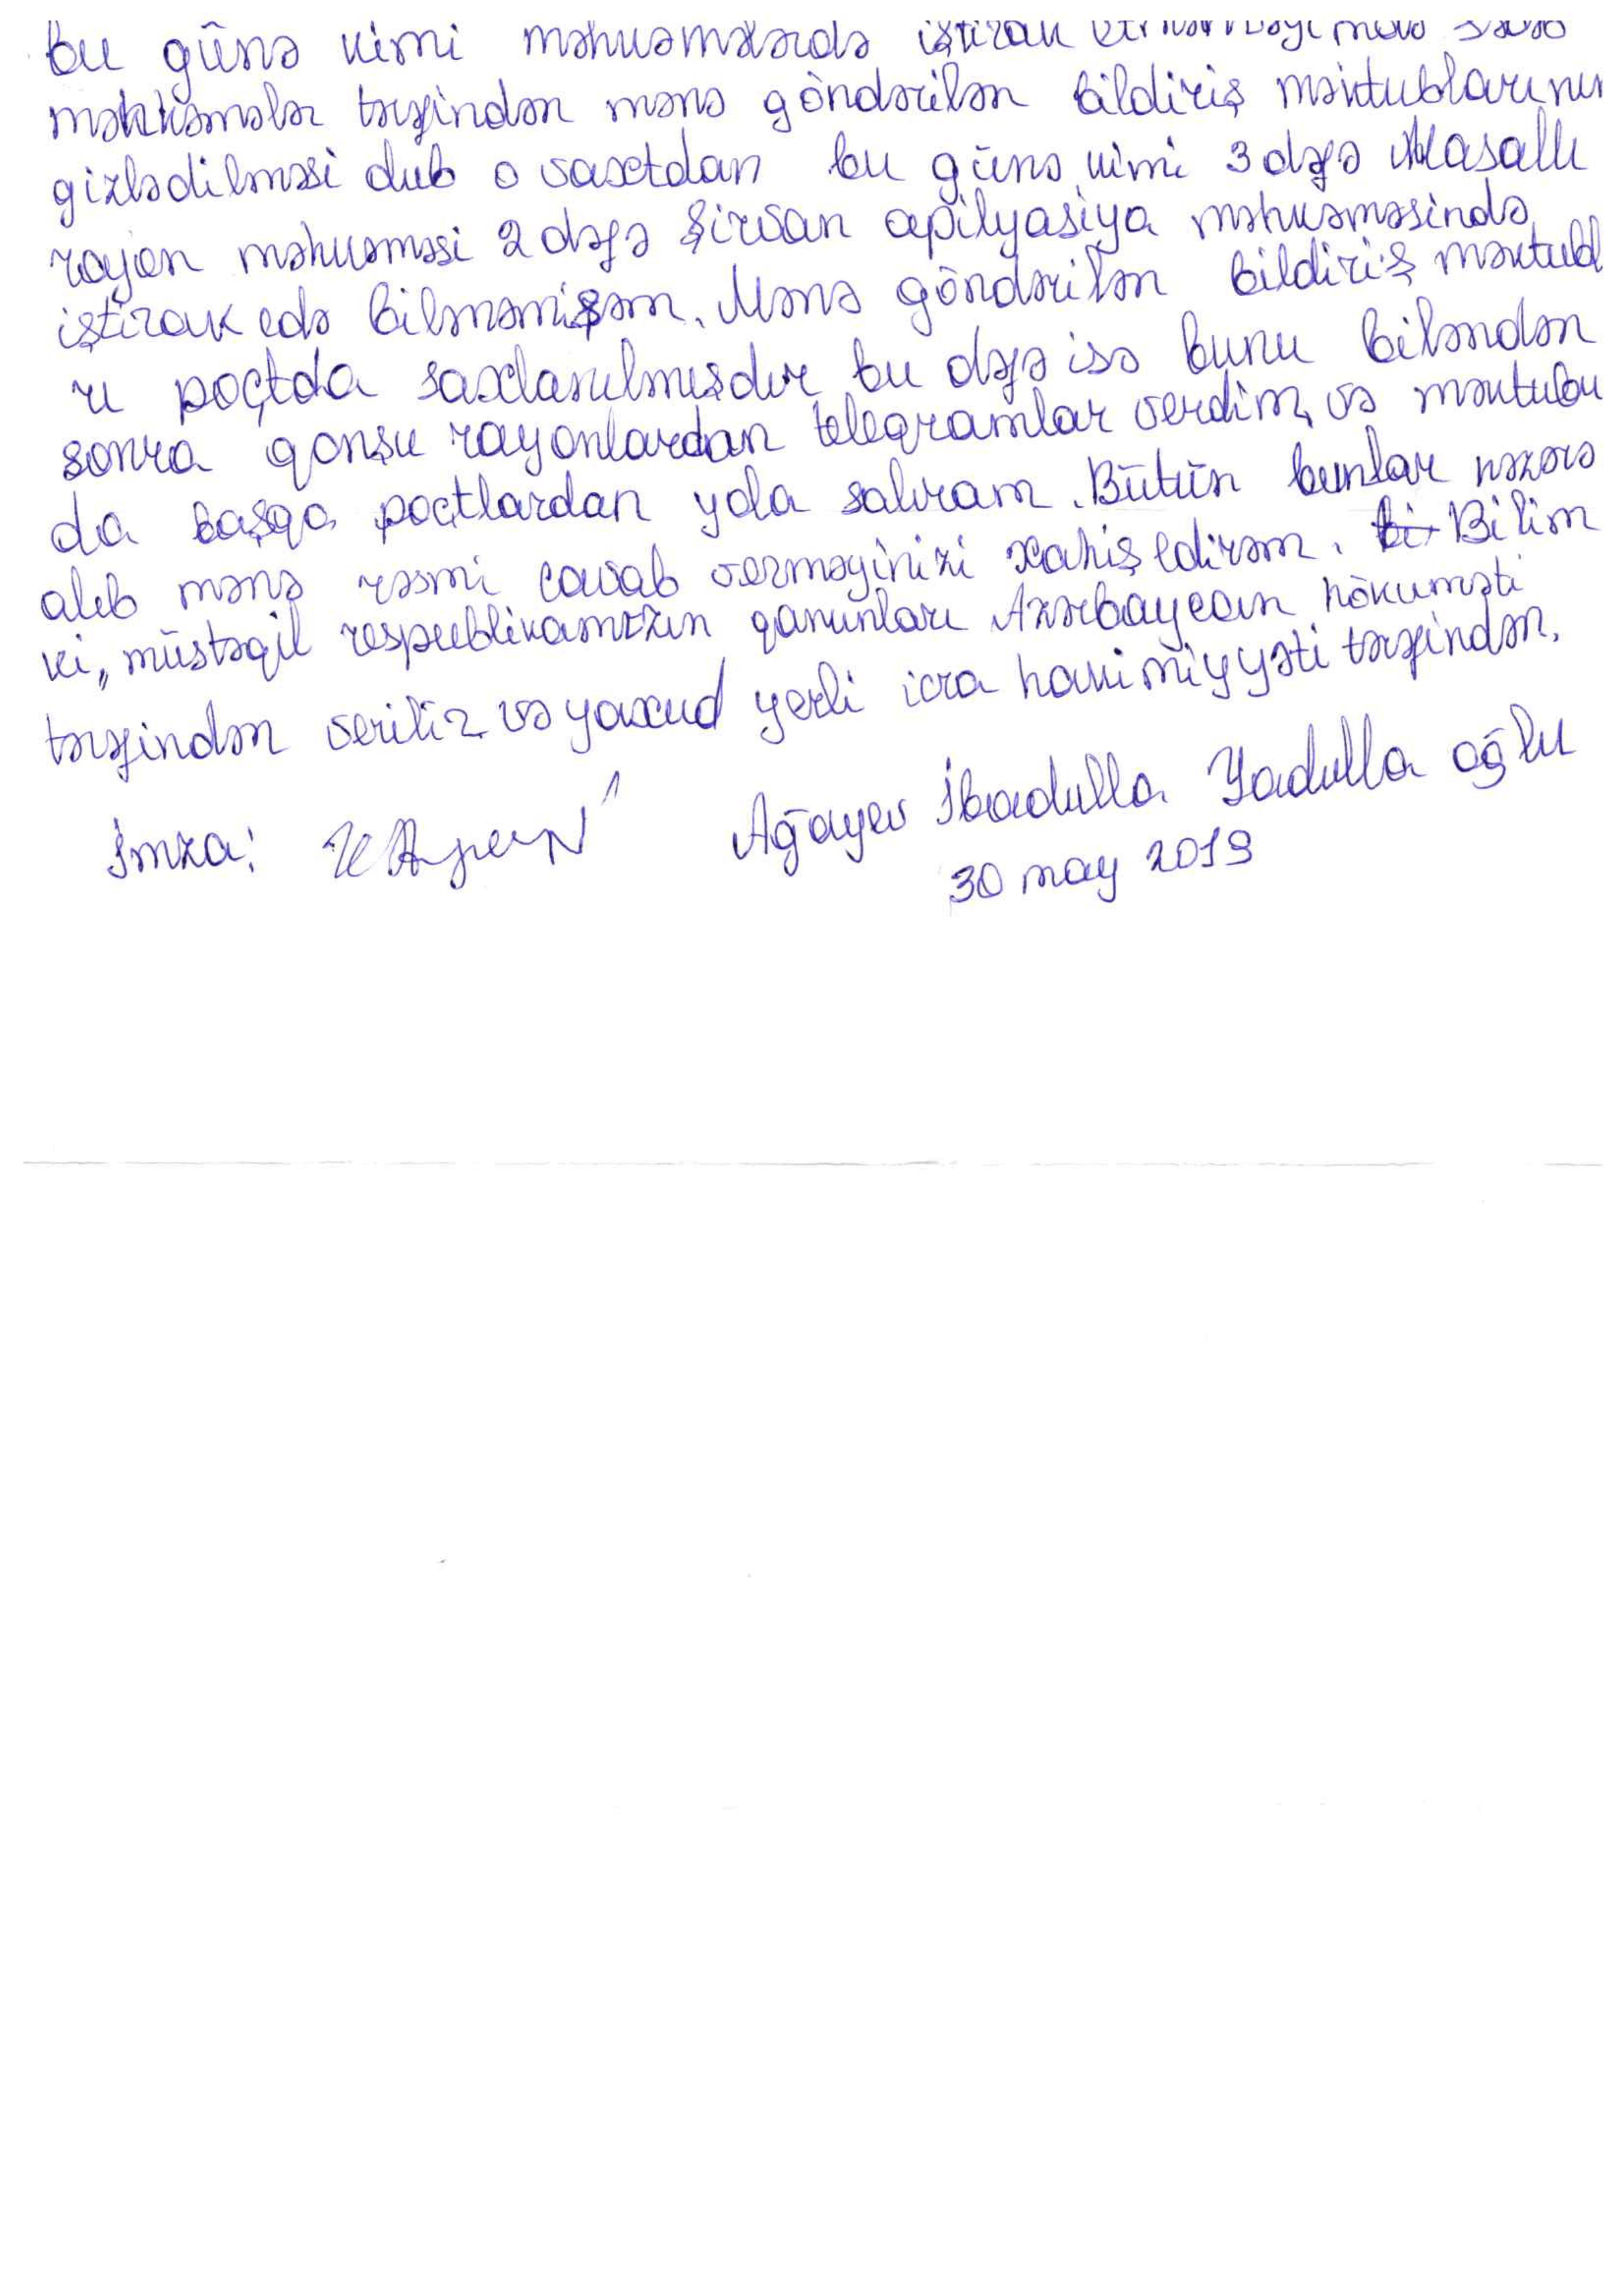 bu günə kimi məhkəmələrdə iştirak etməməyimə səbəb
məhkəmələr tərəfindən mənə göndərilən bildiriş məktublarının
gizlədilməsi olub o vaxtdan bu günə kimi 3 dəfə Masallı
rayon məhkəməsi 2 dəfə Şirvan apilyasiya məhkəməsində
iştirak edə bilməmişəm. Mənə göndərilən bildiriş məktubl
rı poçtda saxlanılmışdır bu dəfə isə bunu biləndən
sonra qonşu rayonlardan teleqramlar verdim, və məktubu
da başqa poçtlardan yola salıram. Bütün bunlar nəzərə
alıb mənə rəsmi cavab verməyinizi xahiş edirəm. bi Bilim
ki, müstəqil respublikamızın qanunları Azərbaycan hökuməti
tərəfindən verilir və yaxud yerli icra hakimiyyəti tərəfindən.
İmza: Ağayev İbadulla Yadulla oğlu
30 may 2019